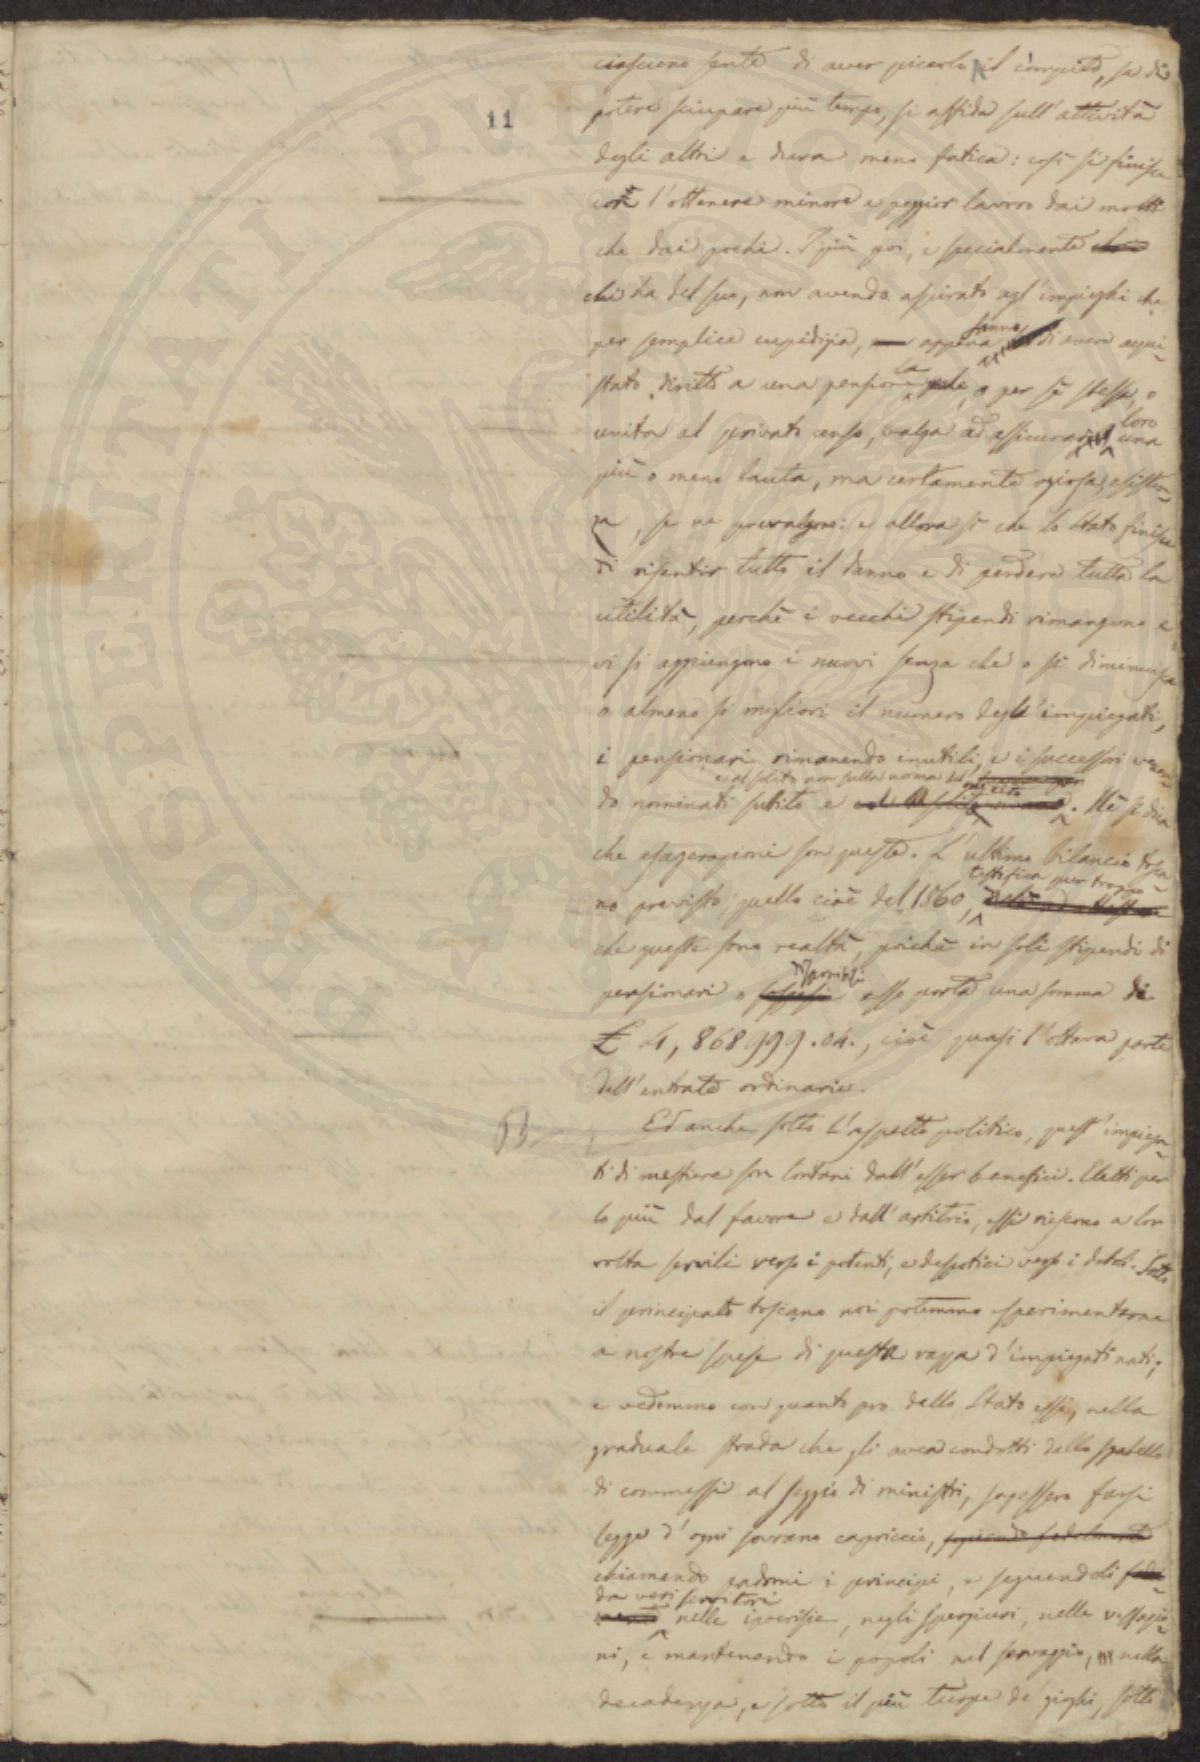 11
ciascuno sente di aver piccolo il compito, sa di
potere sciupare più tempo, si affida sull'attività
degli altri e dura meno fatica: così si finisce
con l'ottenere minore e peggior lavoro dai molti
che dai pochi. I più poi, e specialmente
chi ha del suo, non avendo aspirato agl'impieghi che
per semplice cupidigia, appena sanno di avere acqui-
stato diritto a una pensione la quale, o per sè stessa, o
unita al privato censo, valga ad assicurar loro una
più o meno lauta, ma certamente oziosa esisten-
za, se ne prevalgono: e allora sì che lo Stato finisce
di risentir tutto il danno e di perdere tutta la
utilità, perchè i vecchi stipendi rimangono e
vi si aggiungono i nuovi senza che o si diminuisca
o almeno si migliori il numero degl'impiegati,
i pensionari rimanendo inutili, e i successori venen-
do nominati subito e e al solito non sulla norma del merito. Nè si dica
che esagerazioni son queste. L'ultimo bilancio tosca-
no previsto, quello cioè del 1860, testifica pur troppo
che queste sono realtà, poichè in soli stipendi di
pensionari o esso porta una somma di
£ 4,868999.04., cioè quasi l'ottava parte
dell'entrate ordinarie.
B Ed anche sotto l'aspetto politico, quest'impiega-
ti di mestiere son lontani dall'esser benefici. Eletti per
lo più dal favore e dall'arbitrio, essi riescono a lor
volta servili verso i potenti, e despotici verso i deboli. Sotto
il principato toscano noi potemmo esperimentarne
a nostre spese di questa razza d'impiegati nati;
e vedemmo con quanto pro dello Stato essi, nella
graduale strada che gli avea condotti dallo sgabello
di commessi al seggio di ministri, sapessero farsi
legge d'ogni sovrano capriccio, seguendo fedelmente
chiamando padroni i principi, e seguendoli
da veri servitori nelle ipocrisie, negli spergiuri, nelle vessazio-
ni, e mantenendo i popoli nel servaggio, nella
decadenza, e sotto il più turpe de' gioghi, sotto